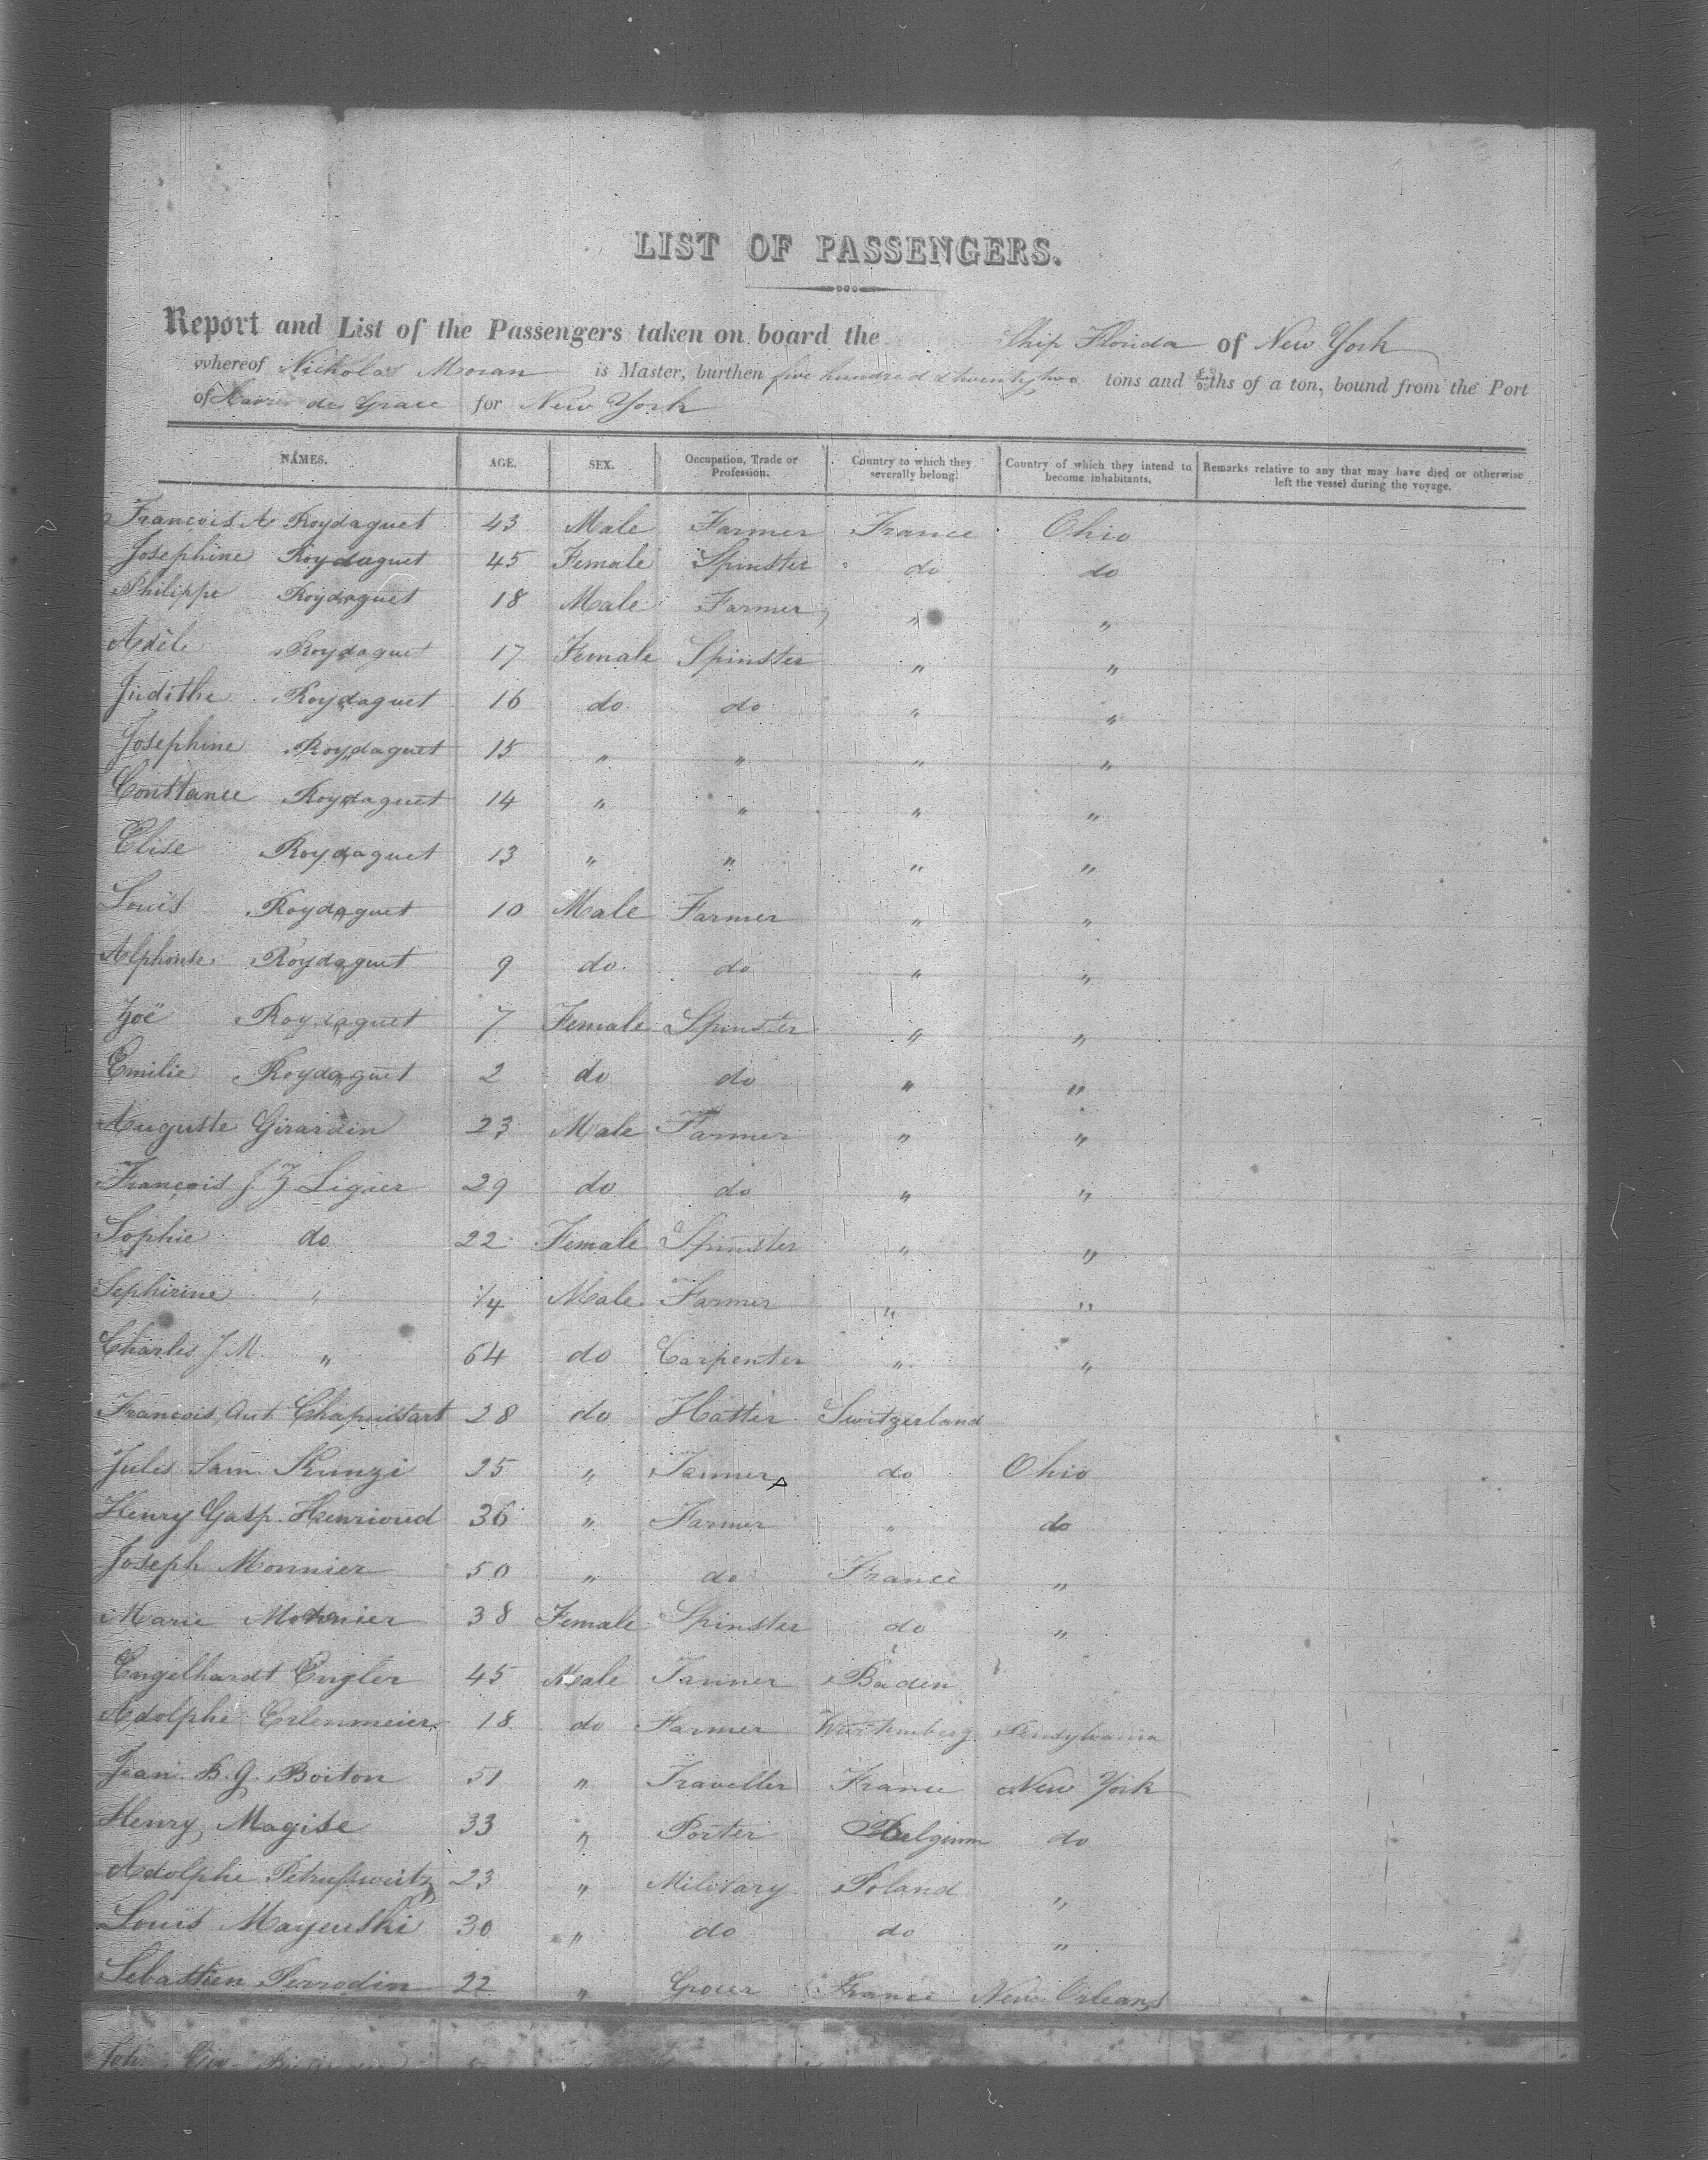 LIST OF PASSENGERS.
Report and List of the Passengers taken on board the Ship Florida of New York
whereof Nicholas Moran is Master, burthen five hundred & twenty two tons and /95ths of a ton, bound from the Port
of Havre de Grace for New York
NAMES. AGE. SEX. Occupation, Trade or Profession. Country to which they severally belong. Country of which they intend to become inhabitants. Remarks relative to any that may have died or otherwise left the vessel during the voyage.
Francois A Roydaguet 43 Male Farmer France Ohio
Josephine Roydaguet 45 Female Spinster do do
Philippe Roydaguet 18 Male Farmer " "
Adèle Roydaguet 17 Female Spinster " "
Judithe Roydaguet 16 do do " "
Josephine Roydaguet 15 " " " "
Constance Roydaguet 14 " " " "
Elise Roydaguet 13 " " " "
Louis Roydaguet 10 Male Farmer " "
Alphonse Roydaguet 9 do do " "
Zoë Roydaguet 7 Female Spinster " "
Emilie Roydaguet 2 do do " "
Auguste Girardin 23 Male Farmer " "
François J. Z Ligier 29 do do " "
Sophie do 22 Female Spinster " "
Sephirine " 1/4 Male Farmer " "
Charles J. M. " 64 do Carpenter " "
Francois Ant. Chapuistart 28 do Hatter Switzerland
Jules Sam Kunzi 25 " Tanner do Ohio
Henry Gasp. Henrioud 36 " Farmer " do
Joseph Monnier 50 " do France "
Marie Monnier 38 Female Spinster do "
Engelhardt Engler 45 Male Tanner Baden
Adolphe Erlenmeier 18 do Farmer Wurtemberg Pensylvania
Jean B. G. Boiton 51 " Traveller France New York
Henry Magise 33 " Porter Belgium do
Adolphe 23 " Military Poland "
Louis Mayeuski 30 " do do "
Sebastien Perrodin 22 " Grocer France New Orleans